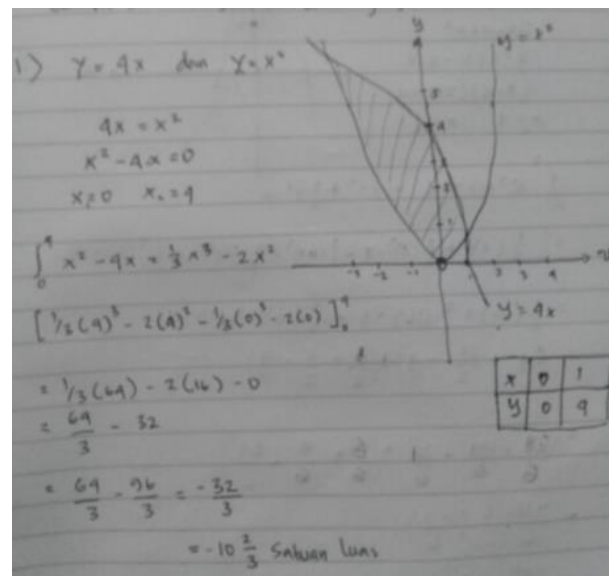 1) Y = 4x dan Y = x²
4x = x²
x² - 4x = 0
x₁=0 x₂=4
∫₀⁴ x² - 4x = 1/3 x³ - 2x²
[1/3(4)³ - 2(4)² - 1/3(0)³ - 2(0)]₀⁴
= 1/3(64) - 2(16) - 0
= 64/3 - 32
= 64/3 - 96/3 = -32/3
= -10 2/3 Satuan luas
y
5
4
3
2
1
-3 -2 -1 0 1 2 3 4
y = x²
y = 4x
x 0 1
y 0 4